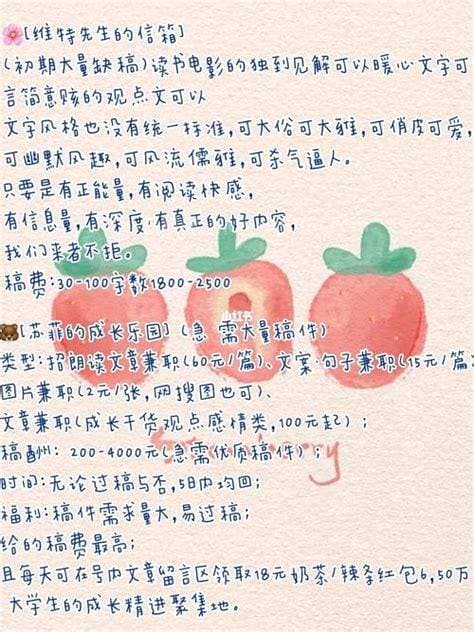 🌸[维特先生的信箱]
(初期大量缺稿)读书电影的独到见解可以暖心文字可以
言简意赅的观点文可以
文字风格也没有统一标准,可大俗可大雅,可俏皮可爱,
可幽默风趣,可风流儒雅,可杀气逼人。
只要是有正能量,有阅读快感,
有信息量,有深度·有真正的好内容,
我们来者不拒。
稿费:30-100字数1800-2500
小红书
🐻[苏菲的成长乐园](急 需大量稿件)
类型:招朗读文章兼职(60元/篇)、文案·句子兼职(15元/篇)
图片兼职(2元/张,网搜图也可)、
文章兼职(成长干货观点感情类,100元起);
稿酬: 200-4000元(急需优质稿件);
时间:无论过稿与否,5日内均回;
福利:稿件需求量大,易过稿;
给的稿费最高;
且每天可在号内文章留言区领取18元奶茶/辣条红包6,50万
大学生的成长精进聚集地。